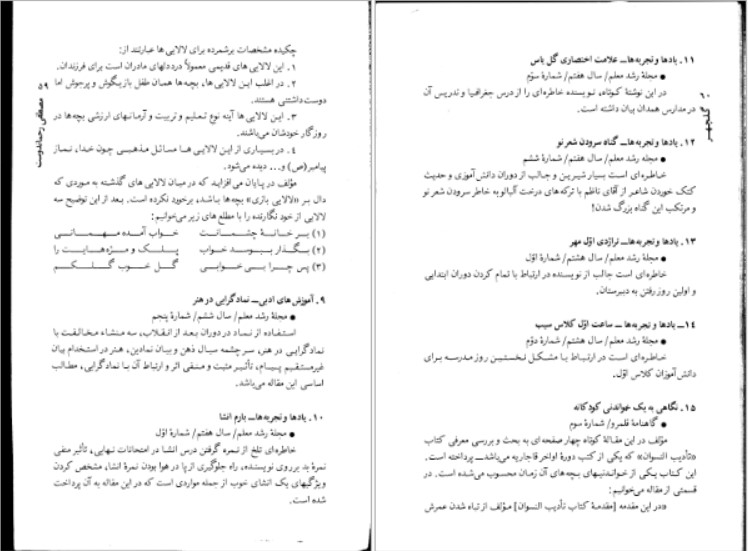 ۶۰ گلچهر
۱۱. یادها و تجربه‌ها_ علامت اختصاری گل یاس
● مجلهٔ رشد معلم/ سال هفتم/ شمارهٔ سوّم
در این نوشتهٔ کوتاه، نویسنده خاطره‌ای را از درس جغرافیا و تدریس آن
در مدارس همدان بیان داشته است.
۱۲. یادها و تجربه‌ها_ گناه سرودن شعر نو
● مجلهٔ رشد معلم/ سال هفتم/ شمارهٔ ششم
خاطره‌ای است بسیار شیرین و جالب از دوران دانش‌آموزی و حدیث
کتک خوردن شاعر از آقای ناظم با ترکه‌های درخت آلبالو به خاطر سرودن شعر نو
و مرتکب این گناه بزرگ شدن!
۱۳. یادها و تجربه‌ها_ تراژدی اوّل مهر
● مجلهٔ رشد معلم/ سال هشتم/ شمارهٔ اوّل
خاطره‌ای است جالب از نویسنده در ارتباط با تمام کردن دوران ابتدایی
و اولین روز رفتن به دبیرستان.
۱۴_ یادها و تجربه‌ها_ ساعت اوّل کلاس سیب
● مجلهٔ رشد معلم/ سال هشتم/ شمارهٔ دوّم
خاطره‌ای است در ارتباط با مشکل نخستین روز مدرسه برای
دانش‌آموزان کلاس اوّل.
۱۵. نگاهی به یک خواندنی کودکانه
● گاهنامهٔ قلمرو/ شمارهٔ سوم
مؤلف در این مقالهٔ کوتاه چهار صفحه‌ای به بحث و بررسی معرفی کتاب
«تأدیب النسوان» که یکی از کتب دورهٔ اواخر قاجاریه می‌باشد_ پرداخته است.
این کتاب یکی از خواندنیهای بچه‌های آن زمان محسوب می‌شده است. در
قسمتی از مقاله می‌خوانیم:
«در این مقدمه [مقدمهٔ کتاب تأدیب النسوان] مؤلف از تباه شدن عمرش
۵۹ مصطفی رحماندوست
چکیده مشخصات برشمرده برای لالایی ها عبارتند از:
۱. این لالایی های قدیمی معمولاً درددلهای مادران است برای فرزندان.
۲. در اغلب این لالایی ها، بچه‌ها همان طفل بازیگوش و پرجوش اما
دوست‌داشتنی هستند.
۳. این لالایی ها آینه نوع تعلیم و تربیت و آرمانهای ارزشی بچه‌ها در
روزگار خودشان می‌باشند.
۴. در بسیاری از این لالایی ها مسائل مذهبی چون خدا، نماز
پیامبر(ص) و... دیده می‌شود.
مؤلف در پایان می افزاید که در میان لالایی های گذشته به موردی که
دال بر «لالایی بازی» بچه‌ها باشد، برخورد نکرده است. بعد از این توضیح سه
لالایی از خود نگارنده را با مطلع های زیر می‌خوانیم:
(۱) بر خانهٔ چشمانت خواب آمده مهمانی
(۲) بگذار ببوسد خواب پلک و مژه‌هایت را
(۳) پس چرا بی خوابی گل خوب گلکم
۹. آموزش های ادبی_ نمادگرایی در هنر
● مجلهٔ رشد معلم/ سال ششم/ شمارهٔ پنجم
استفاده از نماد در دوران بعد از انقلاب، سه منشاء مخالفت با
نمادگرایی در هنر، سرچشمه سیال ذهن و بیان نمادین، هنر در استخدام بیان
غیرمستقیم پیام، تأثیر مثبت و منفی اثر و ارتباط آن با نمادگرایی، مطالب
اساسی این مقاله می‌باشد.
۱۰. یادها و تجربه‌ها_ بازم انشا
● مجلهٔ رشد معلم/ سال هفتم/ شمارهٔ اوّل
خاطره‌ای تلخ از نمره گرفتن درس انشا در امتحانات نهایی، تأثیر منفی
نمرهٔ بد بر روی نویسنده، راه جلوگیری از پا در هوا بودن نمرهٔ انشا، مشخص کردن
ویژگیهای یک انشای خوب از جمله مواردی است که در این مقاله به آن پرداخت
شده است.